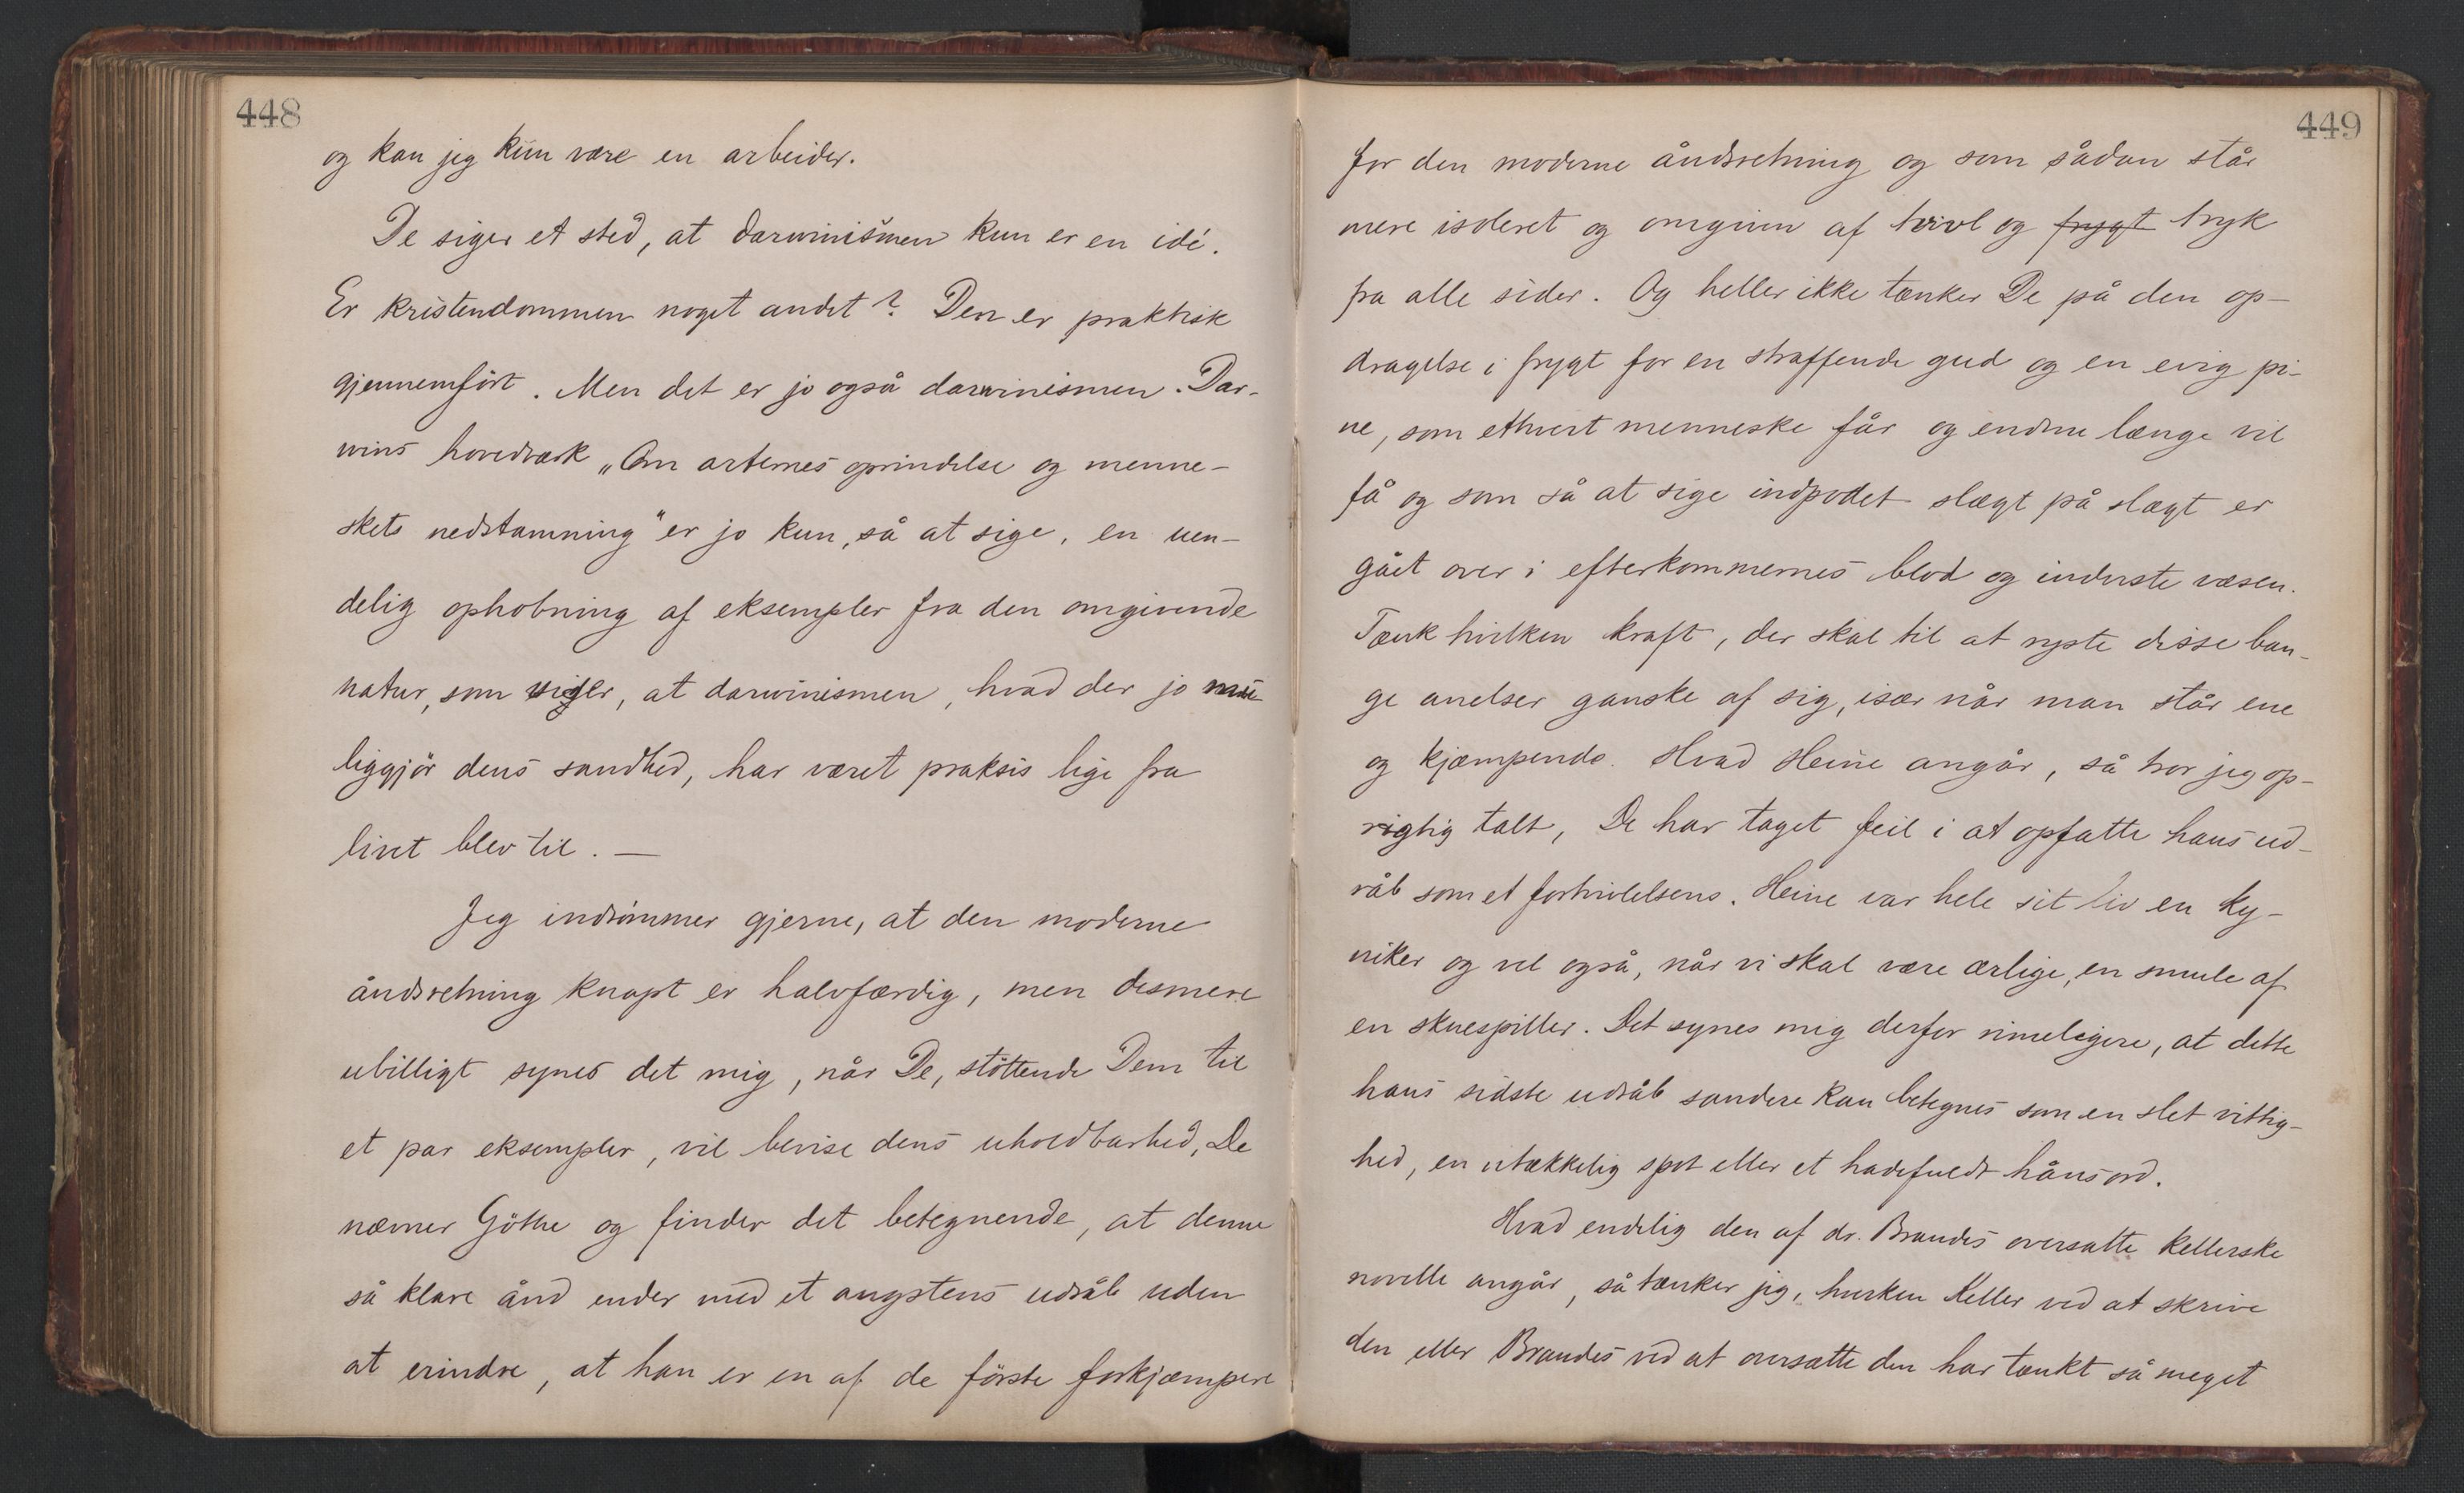 448
og kan jeg kun være en arbeider.
De siger et sted, at darwinismen kun er en idé.
Er kristendommen noget andet? Den er praktisk
gjennemført. Men det er jo også darwinismen. Dar-
wins hovedværk „Om arternes oprindelse og menne-
skets nedstamning" er jo kun, så at sige, en uen-
delig ophobning af eksempler fra den omgivende
natur, som siger, at darwinismen, hvad der jo mu-
liggjör dens sandhed, har været praksis lige fra
livet blev til. —
Jeg indrömmer gjerne, at den moderne
åndsretning knapt er halvfærdig, men desmere
ubilligt synes det mig, når De, støttende Dem til
et par eksempler, vil bevise dens uholdbarhed, De
nævner Göthe og finder det betegnende, at denne
så klare ånd ender med et angstens udråb uden
at erindre, at han er en af de første forkjæmpere
449
for den moderne åndsretning og som sådan står
mere isoleret og omgiven af tvivl og frygt tryk
fra alle sider. Og heller ikke tænker De på den op-
dragelse i frygt for en straffende gud og en evig pi-
ne, som ethvert menneske får og endnu længe vil
få og som så at sige indpodet slægt på slægt er
gået over i efterkommernes blod og inderste væsen.
Tænk hvilken kraft, der skal til at ryste disse ban-
ge anelser ganske af sig, især når man står ene
og kjæmpende. Hvad Heine angår, så tror jeg op-
rigtig talt, De har taget feil i at opfatte hans ud-
råb som et fortvivlelsens. Heine var hele sit liv en ky-
niker og vel også, når vi skal være ærlige, en smule af
en skuespiller. Det synes mig derfor rimeligere, at dette
hans sidste udråb sandere kan betegnes som en slet vittig-
hed, en utækkelig spot eller et hadefuldt hånsord.
Hvad endelig den af dr. Brandes oversatte Kellerske
novelle angår, så tænker jeg, hverken Keller ved at skrive
den eller Brandes ved at oversætte den har tænkt så meget